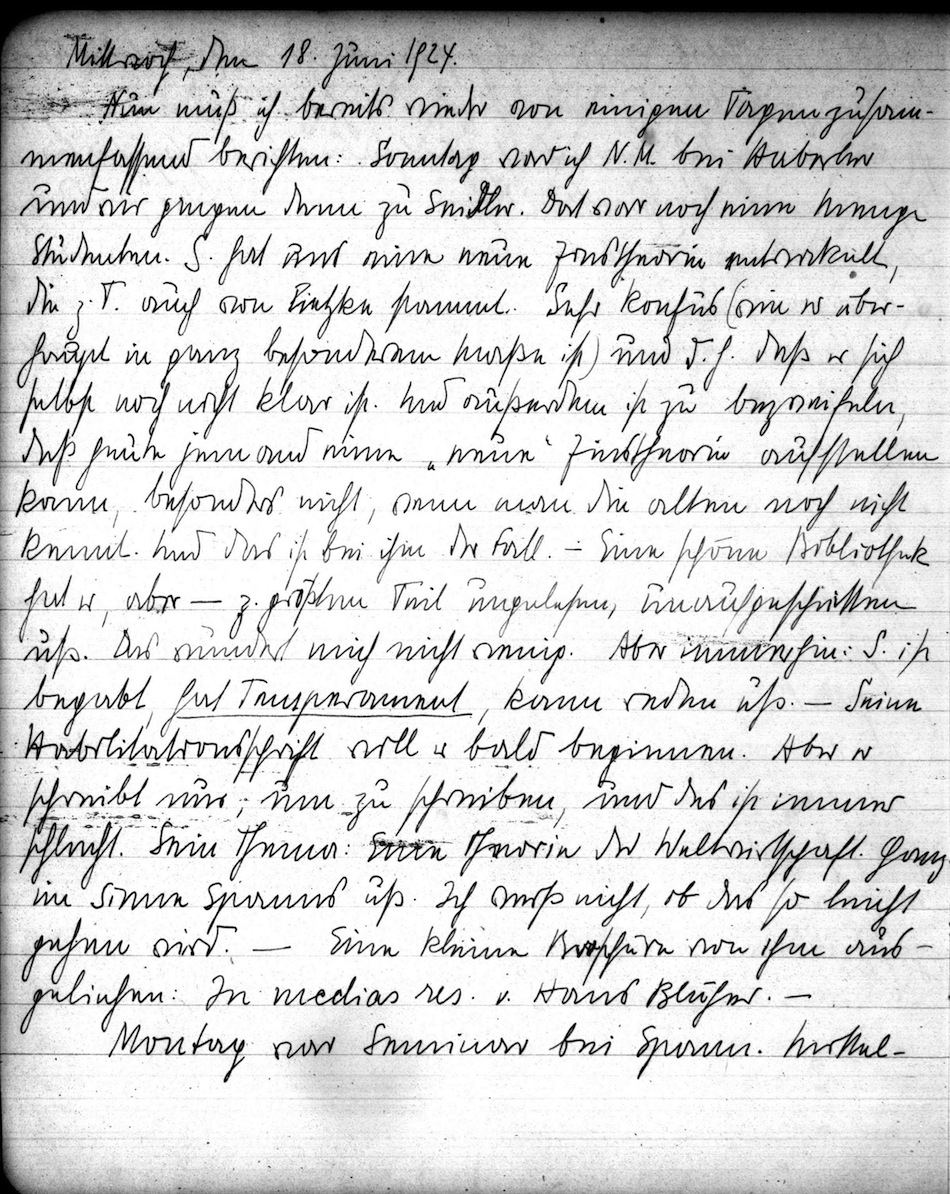 Mittwoch, den 18. Juni 1924.
Nun muß ich bereits wieder von einigen Tagen zusam-
menfassend berichten: Sonntag war ich N.M. bei Haberler
und wir gingen dann zu Seidler. Dort war noch eine Menge
Studenten. S. hat uns eine neue Zinstheorie entwickelt,
die z. T. auch von Lietzke stammt. Sehr konfus (wie er über-
haupt in ganz besonderem Maße ist) und d. h. daß er sich
selbst noch nicht klar ist. Und außerdem ist zu bezweifeln,
daß heute jemand eine „neue" Zinstheorie aufstellen
kann, besonders nicht, wenn man die alten noch nicht
kennt. Und das ist bei ihm der Fall. – Eine schöne Bibliothek
hat er, aber — z. größten Teil ungelesen, unaufgeschnitten
usf. Das wundert mich nicht wenig. Aber immerhin: S. ist
begabt, hat Temperament, kann reden usf. — Seine
Habilitationsschrift will er bald beginnen. Aber er
schreibt nur, um zu schreiben, und das ist immer
schlecht. Sein Thema: Eine Theorie der Weltwirtschaft. Ganz
im Sinne Spanns usf. Ich weiß nicht, ob das so leicht
gehen wird. — Eine kleine Broschüre von ihm aus-
geliehen: In medias res. v. Hans Blüher. —
Montag war Seminar bei Spann. Mittel-